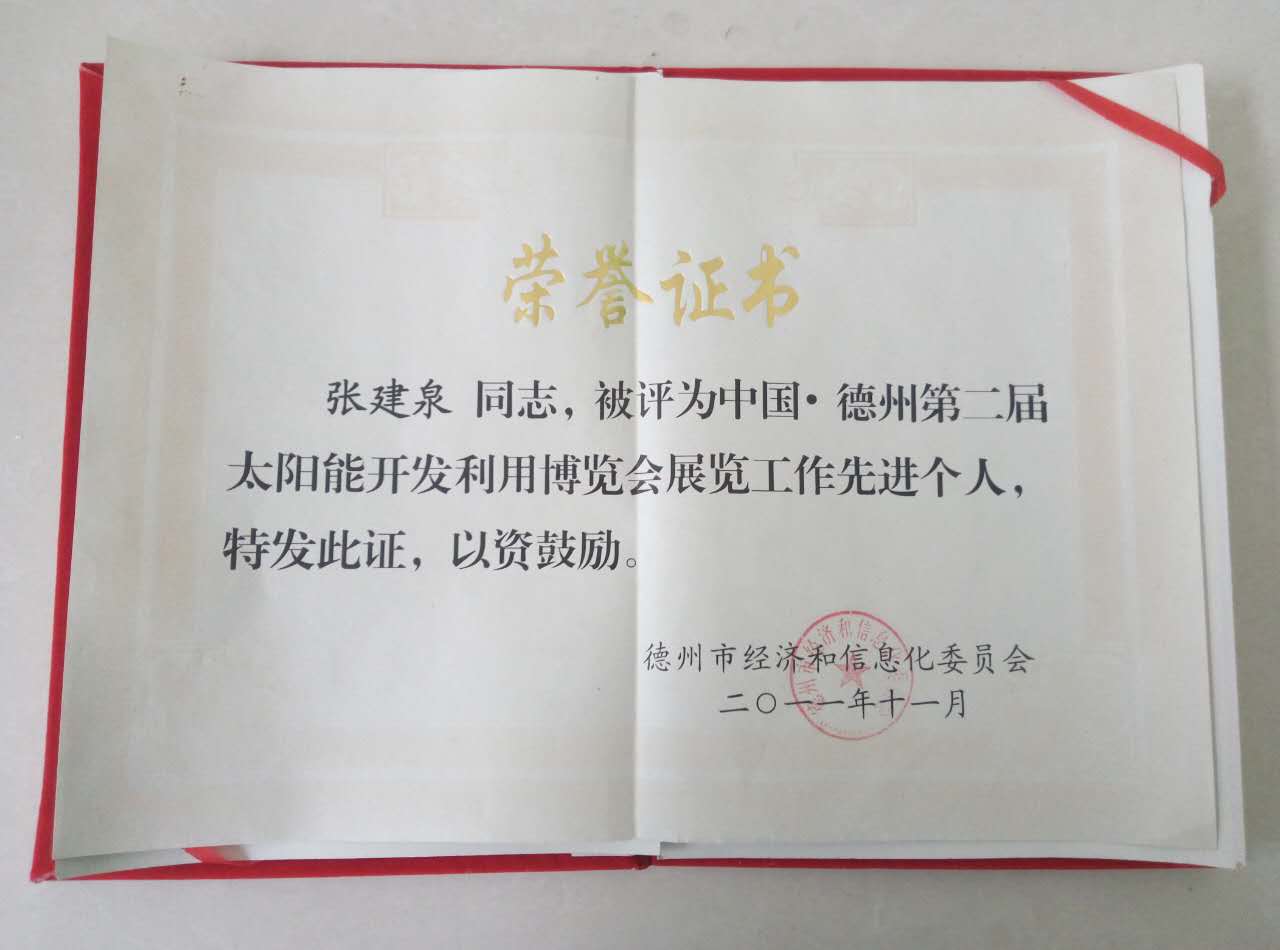 荣誉证书
张建泉 同志，被评为中国·德州第二届
太阳能开发利用博览会展览工作先进个人，
特发此证，以资鼓励。
德州市经济和信息化委员会
二〇一一年十一月